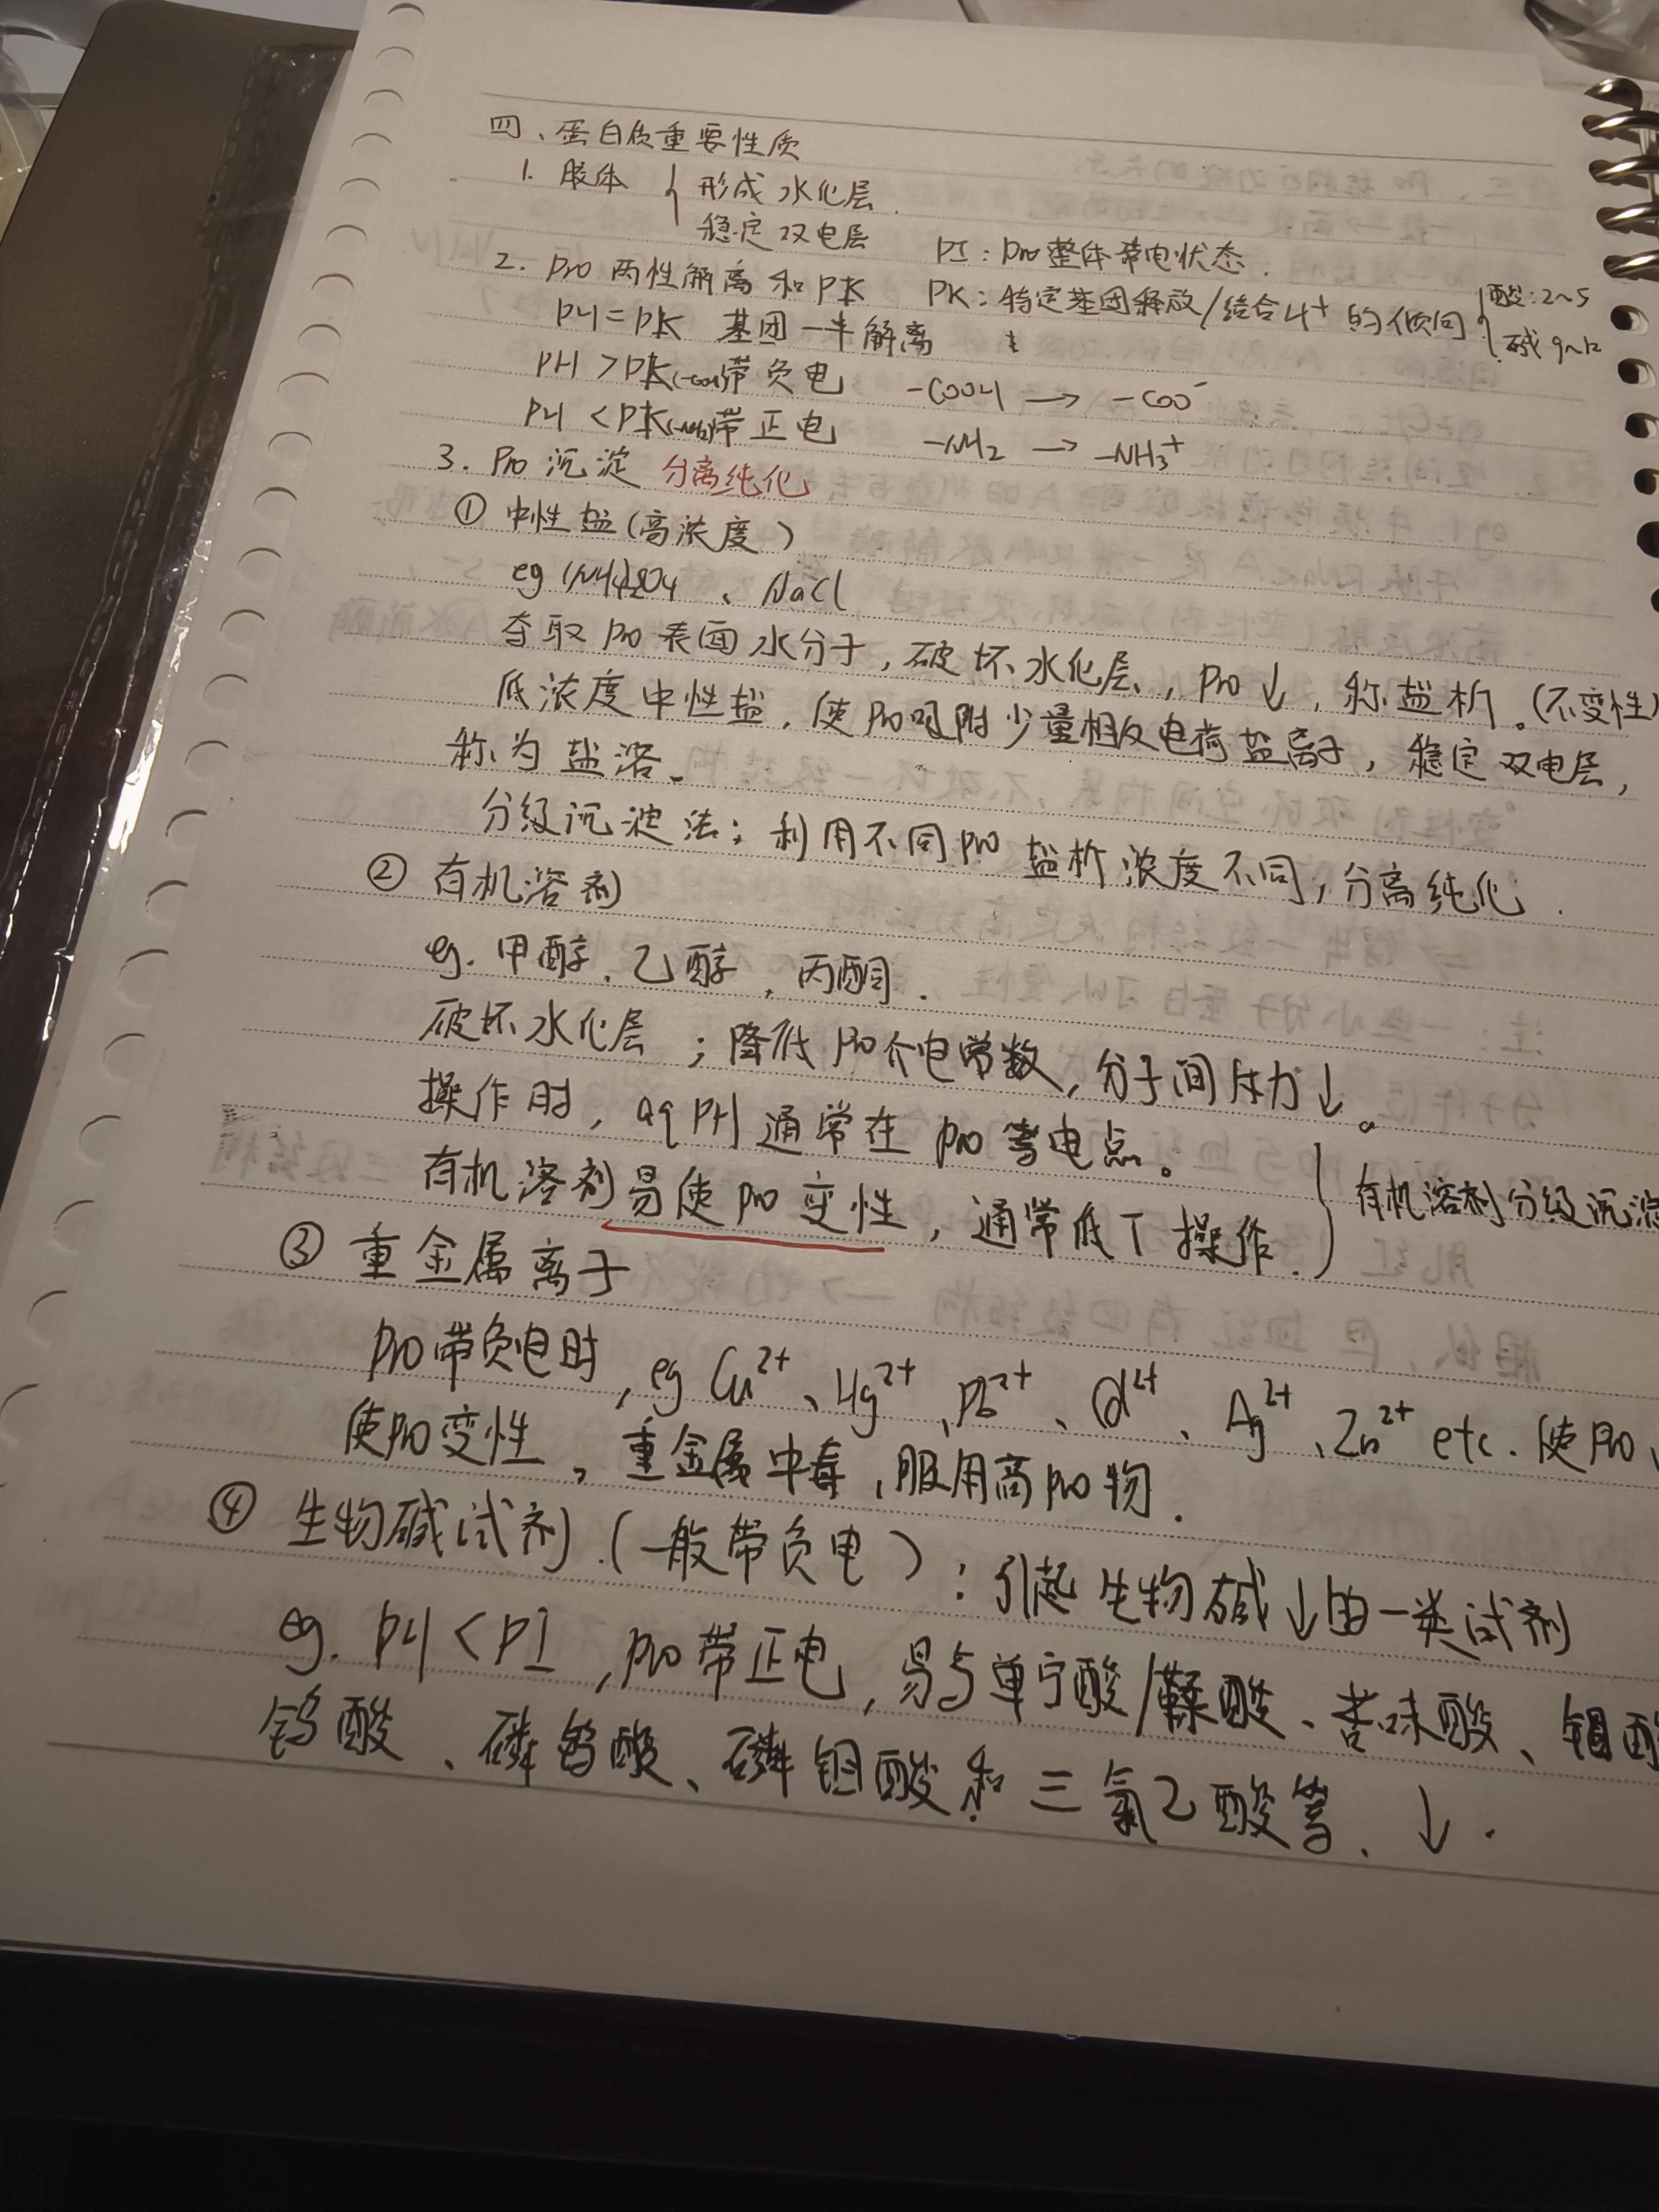 四、蛋白质重要性质
1. 胶体 { 形成水化层.
稳定双电层
PI：Pro整体带电状态.
2. Pro 两性解离和PK PK：特定基团释放/结合H⁺的倾向 { 酸:2~5
碱 9~12
PH=PK 基团一半解离
PH>PK(-COOH)带负电 -COOH → -COO⁻
PH<PK(-NH₂)带正电 -NH₂ → -NH₃⁺
3. Pro 沉淀 分离纯化
① 中性盐(高浓度)
eg (NH₄)₂SO₄、NaCl
夺取Pro表面水分子,破坏水化层,Pro↓,称盐析。(不变性)
低浓度中性盐,使Pro吸附少量相反电荷盐离子,稳定双电层,
称为盐溶.
分级沉淀法;利用不同Pro盐析浓度不同,分离纯化.
② 有机溶剂
eg. 甲醇.乙醇,丙酮.
破坏水化层;降低Pro介电常数,分子间 力↓
操作时,aq PH通常在Pro等电点。
有机溶剂易使Pro变性,通常低T操作. } 有机溶剂分级沉淀
③ 重金属离子
Pro带负电时,eg Cu²⁺、Hg²⁺、Pb²⁺、Cd²⁺、Ag²⁺、Zn²⁺ etc. 使Pro↓
使Pro变性,重金属中毒,服用高Pro物.
④ 生物碱试剂.(一般带负电):引起生物碱↓由一类试剂
eg. PH<PI,Pro带正电,易与单宁酸/鞣酸、苦味酸、钼酸
钨酸、磷钨酸、磷钼酸和三氯乙酸等、↓.